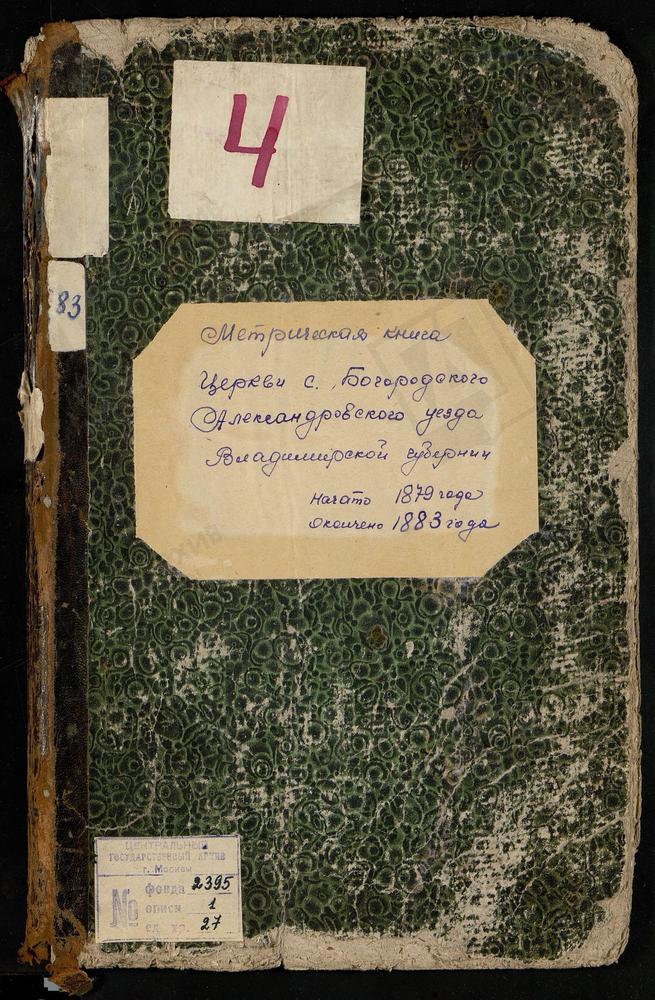 4
83
Метрическая книга
Церкви с. Богородского
Александровского уезда
Владимирской губернии
Начато 1879 года
Окончено 1883 года
ЦЕНТРАЛЬНЫЙ
ГОСУДАРСТВЕННЫЙ АРХИВ
г. Москвы
№ фонда 2395
описи 1
ед. хр. 27